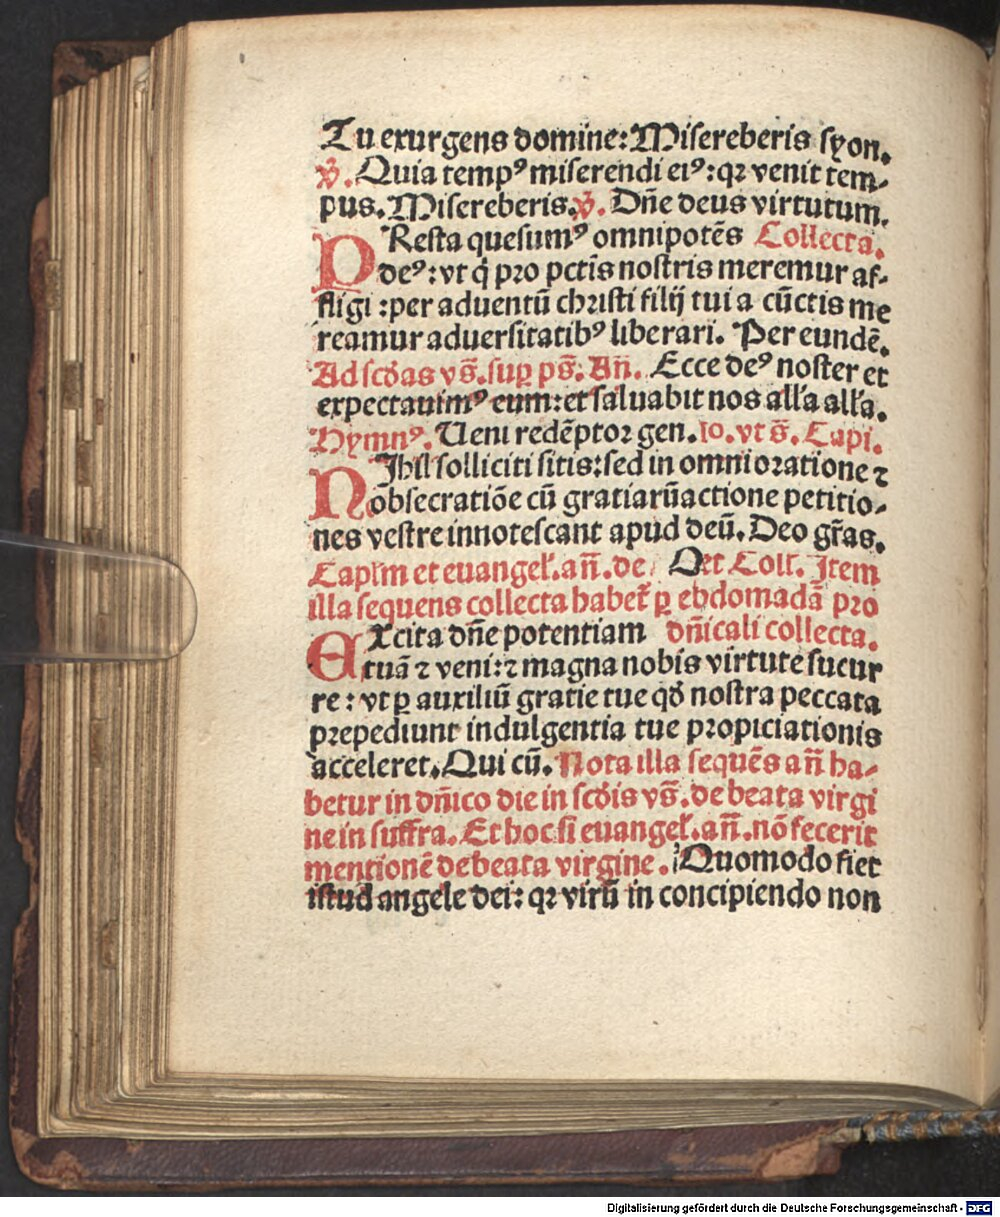 Tu exurgens domine: Misereberis syon.
℣. Quia tempꝰ miserendi eiꝰ: qꝛ venit tem-
pus. Misereberis. ℣. Dn̄e deus virtutum.
PResta quesumꝰ omnipotēs Collecta.
deꝰ: vt q̇ pro pctīs nostris meremur af-
fligi: per aduentū christi filij tui a cūctis me
reamur aduersitatibꝰ liberari. Per eundē.
Ad scďas vs̄. sup̲ ps̄. An̄. Ecce deꝰ noster et
expectauimꝰ eum: et saluabit nos all'a all'a.
Hymnꝰ. Ueni redēptor gen. io. vt s̄. Capi.
NIhil solliciti sitis: sed in omni oratione ⁊
obsecratiōe cū gratiarūactione petitio-
nes vestre innotescant apud deū. Deo gr̄as.
Capl'm et euangel'. an̄. de Oet Coll'. Item
illa sequens collecta habet̄ p̲ ebdomadā pro
EXcita dn̄e potentiam dn̄icali collecta.
tuā ⁊ veni: ⁊ magna nobis virtute sucur
re: vt p̲ auxiliū gratie tue qď nostra peccata
prepediunt indulgentia tue propiciationis
acceleret. Qui cū. Nota illa sequēs an̄ ha-
betur in dn̄ico die in scďis vs̄. de beata virgi
ne in suffra. Et hoc si euangel'. an̄. nō fecerit
mentionē de beata virgine. Quomodo fiet
istud angele dei: qꝛ virū in concipiendo non
Digitalisierung gefördert durch die Deutsche Forschungsgemeinschaft - DFG